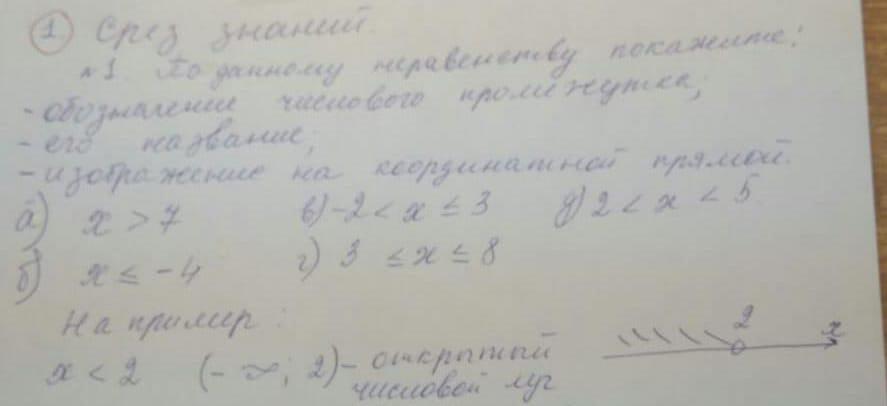 1 Срез знаний.
№1. По данному неравенству покажите:
- обозначение числового промежутка;
- его название;
- изображение на координатной прямой.
а) x > 7 в) -2 < x ≤ 3 д) 2 < x < 5
б) x ≤ -4 г) 3 ≤ x ≤ 8
Например:
x < 2 (-∞; 2) - открытый числовой луч
2 x